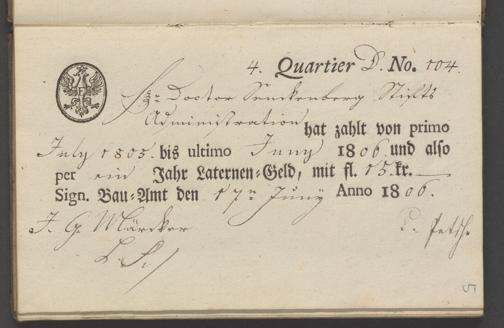 4. Quartier D. No. 104.
Doctor Senckenberg Stifts
Administration hat zahlt von primo
July 1805. bis ultimo Juny 1806. und also
per ein Jahr Laternen-Geld, mit fl. 15. kr.
Sign. Bau-Amt den 17n Juny Anno 1806.
J. G. Märcker
5